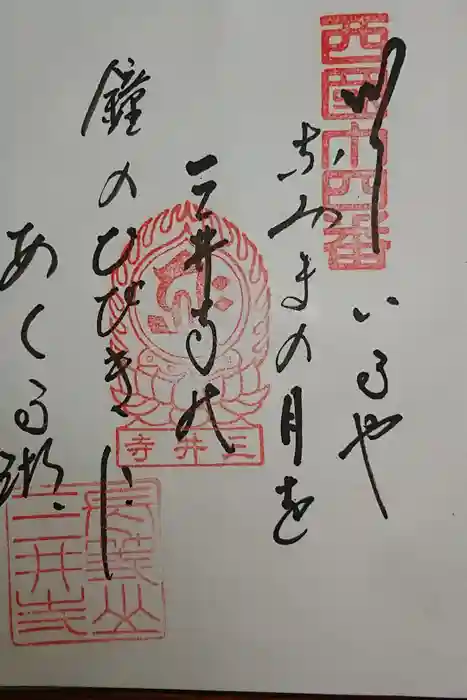 西國十四番
出いるや
なみまの月を
三井寺の
鐘のひびきに
あくる湖
三井寺
長等山
三井寺